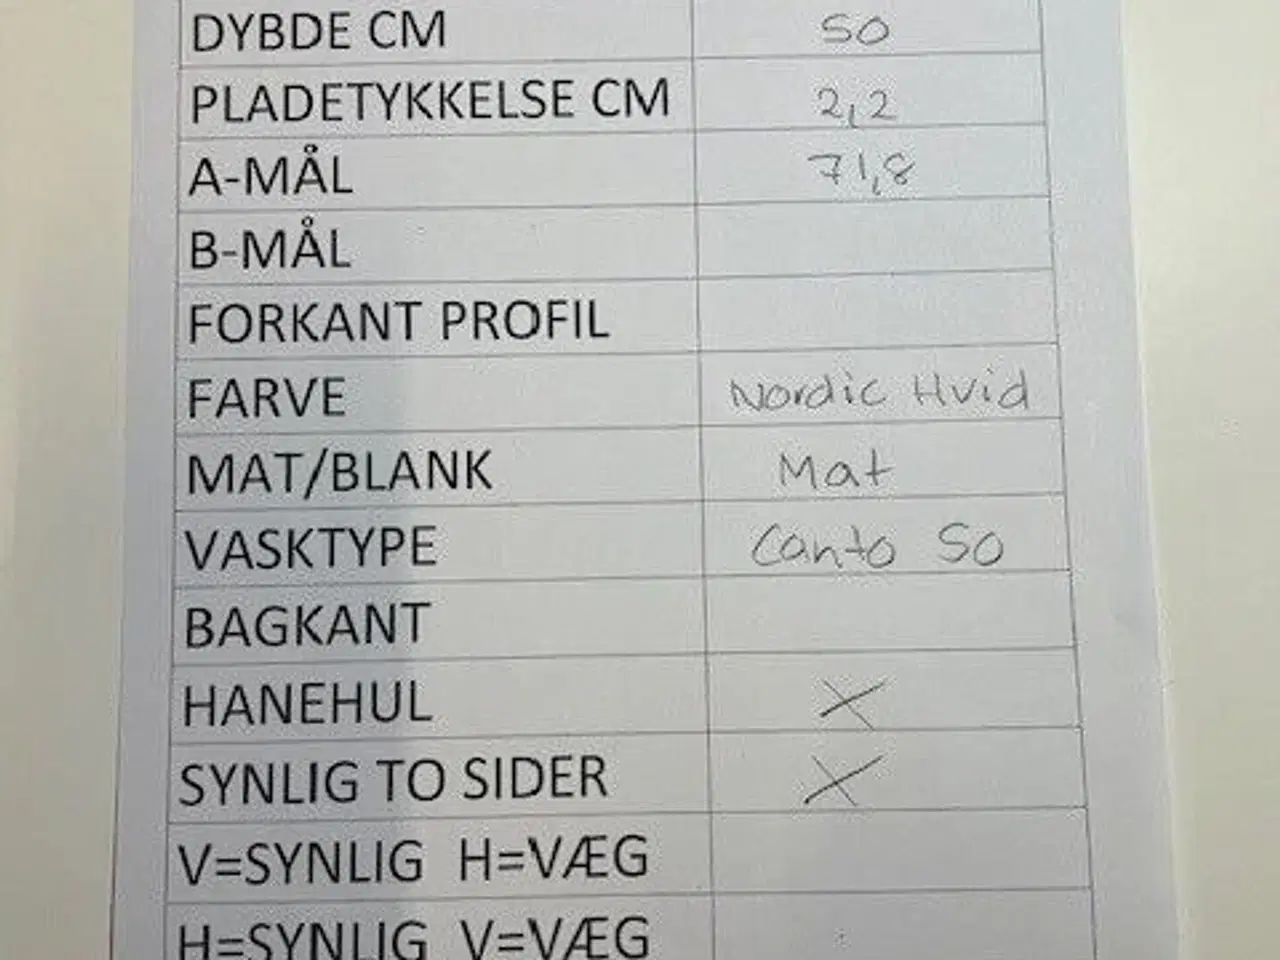 DYBDE CM 50
PLADETYKKELSE CM 2,2
A-MÅL 71,8
B-MÅL
FORKANT PROFIL
FARVE Nordic Hvid
MAT/BLANK Mat
VASKTYPE Canto 50
BAGKANT
HANEHUL X
SYNLIG TO SIDER X
V=SYNLIG H=VÆG
H=SYNLIG V=VÆG